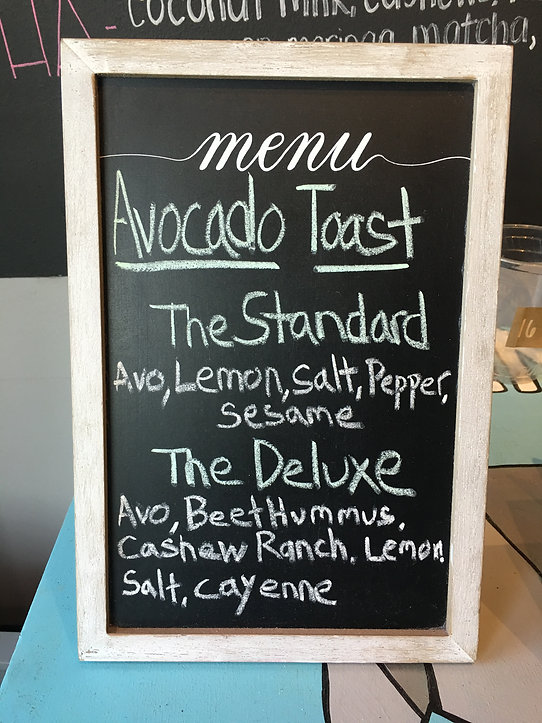 HA- Coconut milk, cashews,
matcha,
menu
Avocado Toast
The Standard
Avo, Lemon, Salt, Pepper,
Sesame
The Deluxe
Avo, Beet Hummus,
Cashew Ranch, Lemon
Salt, cayenne
16